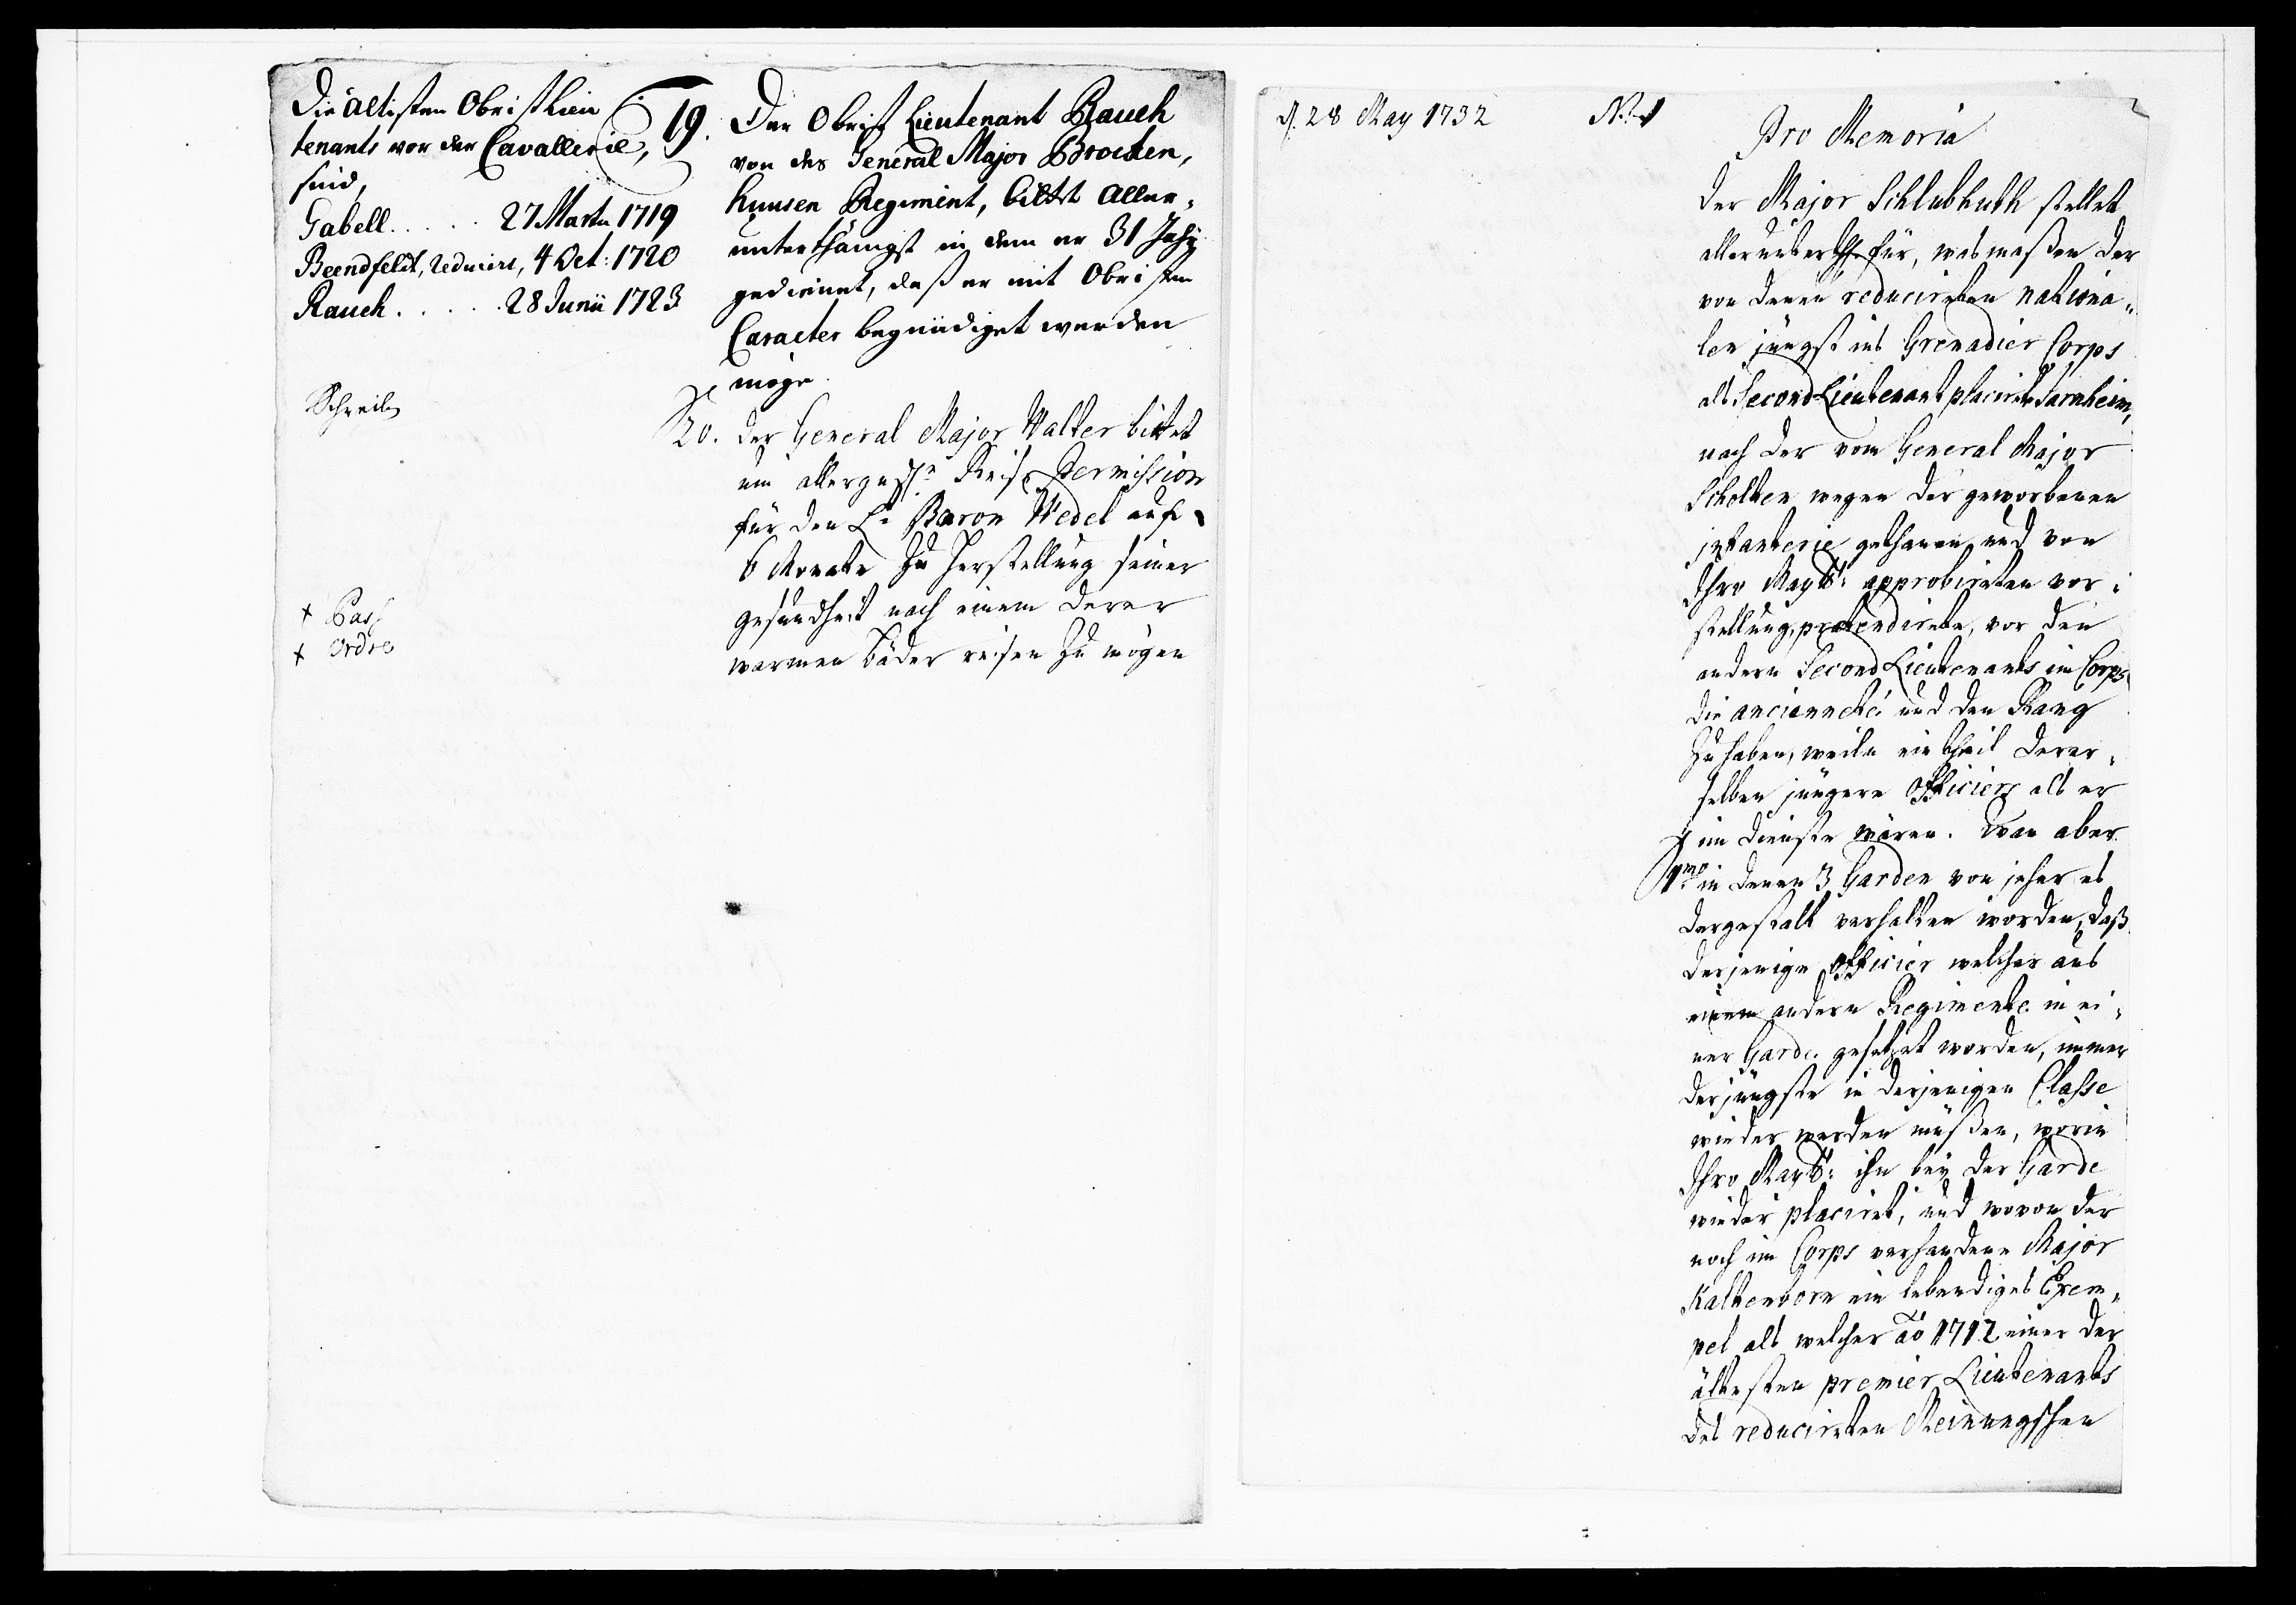 Die ältisten Obrist Lieu
tenants von der Cavallerie,
sind,
Gabell . . . . . 27 Martii 1719
Beendfeldt, reduciert, 4 Oct: 1720
Rauch . . . . . 28 Junii 1723
Schreiben
+ Pass
+ Ordre
19. Der Obrist Lieutenant Rauch
von des General Major Brocken,
huusen Regiment, bittet aller-
unterthänigst in dem er 31 Jahr
gedienet, daß er mit Obristen
Caracter begnädiget werden
möge.
20. der General Major Walter bittet
um allergndste Reise Permission
für den Lt Baron Wedel auf
6 Monate zu Herstellung seiner
gesundheit nach einem derer
warmen bäder reisen zu mögen
d. 28 May 1732
No. 1
Pro Memoria
der Major Schlubhuth stellet
allerunterth. für, was maßen der
von denen reducirten nationa-
len jüngst ins Grenadier Corps
als Second Lieutenant placirte Sarnheim,
nach der vom General Major
Scholten wegen der geworbenen
infanterie gethanen und von
Ihro Maytt: approbirten vor-
stellung, pretendirete, vor den
andern Second Lieutenants im Corps
die ancienneté und den Rang
zu haben, weiln ein theil derer-
selben jüngere Officiers als er
im dienste wären. Wan aber
1mo in denen 3 Garden von jeher es
dergestalt verhalten worden, daß
derjenige Officier welcher aus
einem andern Regimente in ei-
ner Garde gesetzet worden, immer
der jüngste in derjenigen Classe
wieder werden müßen, worin
Ihro Maytt: ihn bey der Garde
wieder placiret, und wovon der
noch im Corps verhandene Major
Kaltenborn ein lebendiges Exem-
pel als welcher ao 1712 einer der
ältesten premier Lieutenants
des reducirten Meinungschen